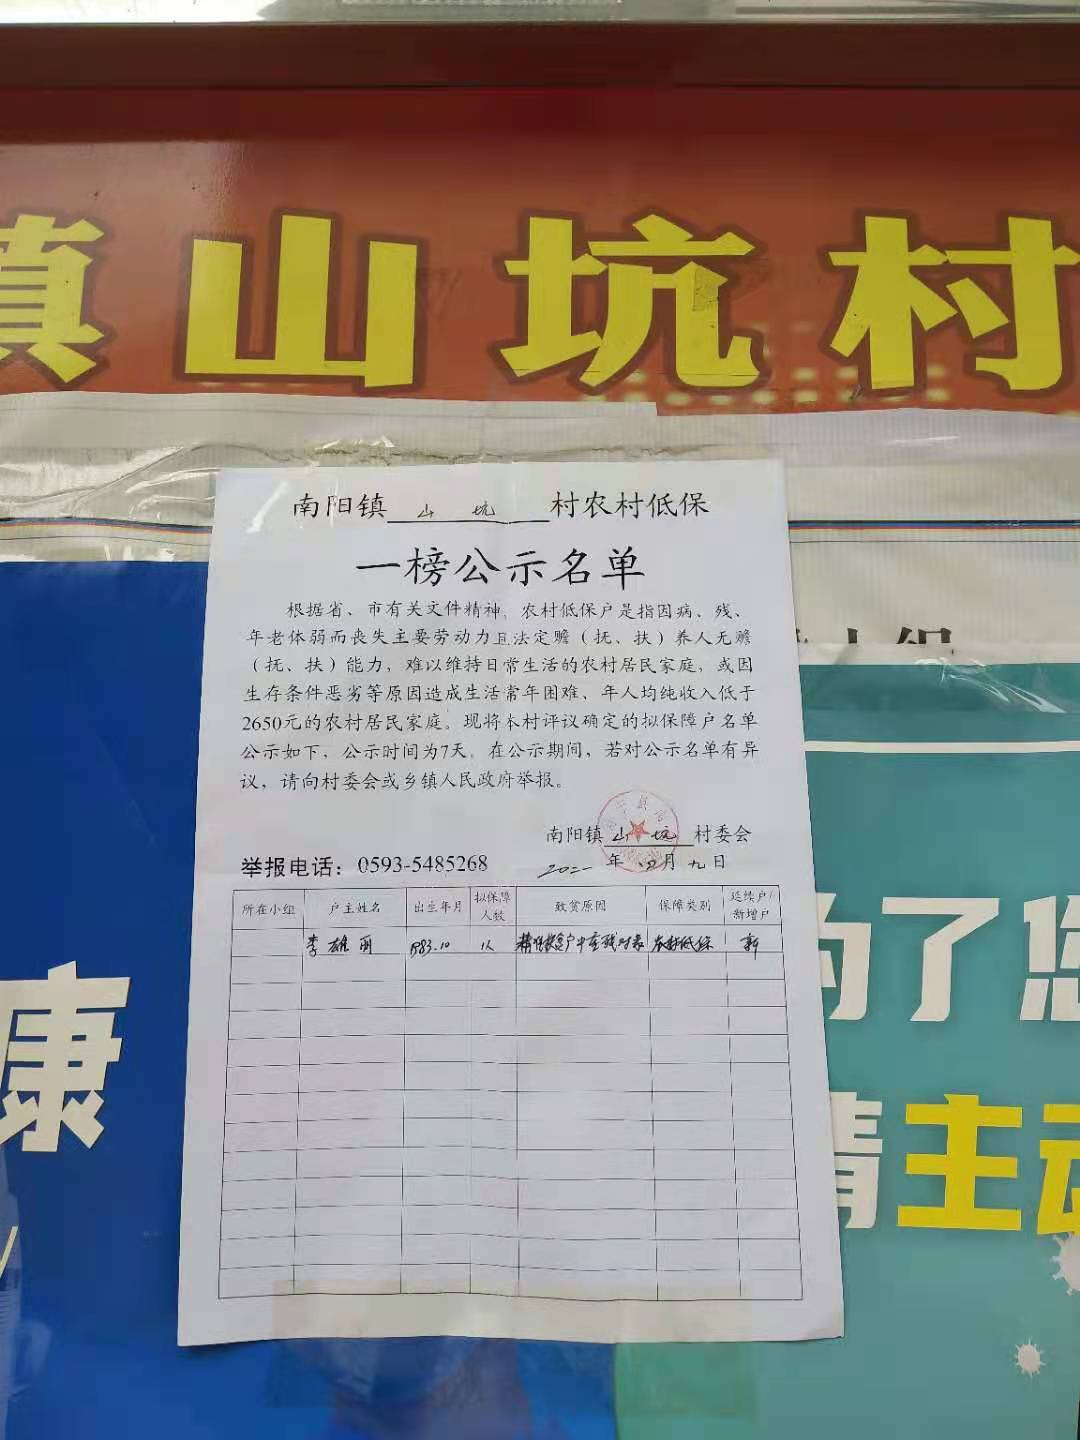 镇山坑村
南阳镇 山坑 村农村低保
一榜公示名单
根据省、市有关文件精神，农村低保户是指因病、残、
年老体弱而丧失主要劳动力且法定赡（抚、扶）养人无赡
（抚、扶）能力，难以维持日常生活的农村居民家庭，或因
生存条件恶劣等原因造成生活常年困难、年人均纯收入低于
2650元的农村居民家庭。现将本村评议确定的拟保障户名单
公示如下，公示时间为7天。在公示期间，若对公示名单有异
议，请向村委会或乡镇人民政府举报。
南阳镇 山坑 村委会
举报电话：0593-5485268
年 月九日
所在小组 户主姓名 出生年月 拟保障人数 致贫原因 保障类别 延续户/新增户
李雄 1983.10 1人 农村低保 新
康
为了您
请主动